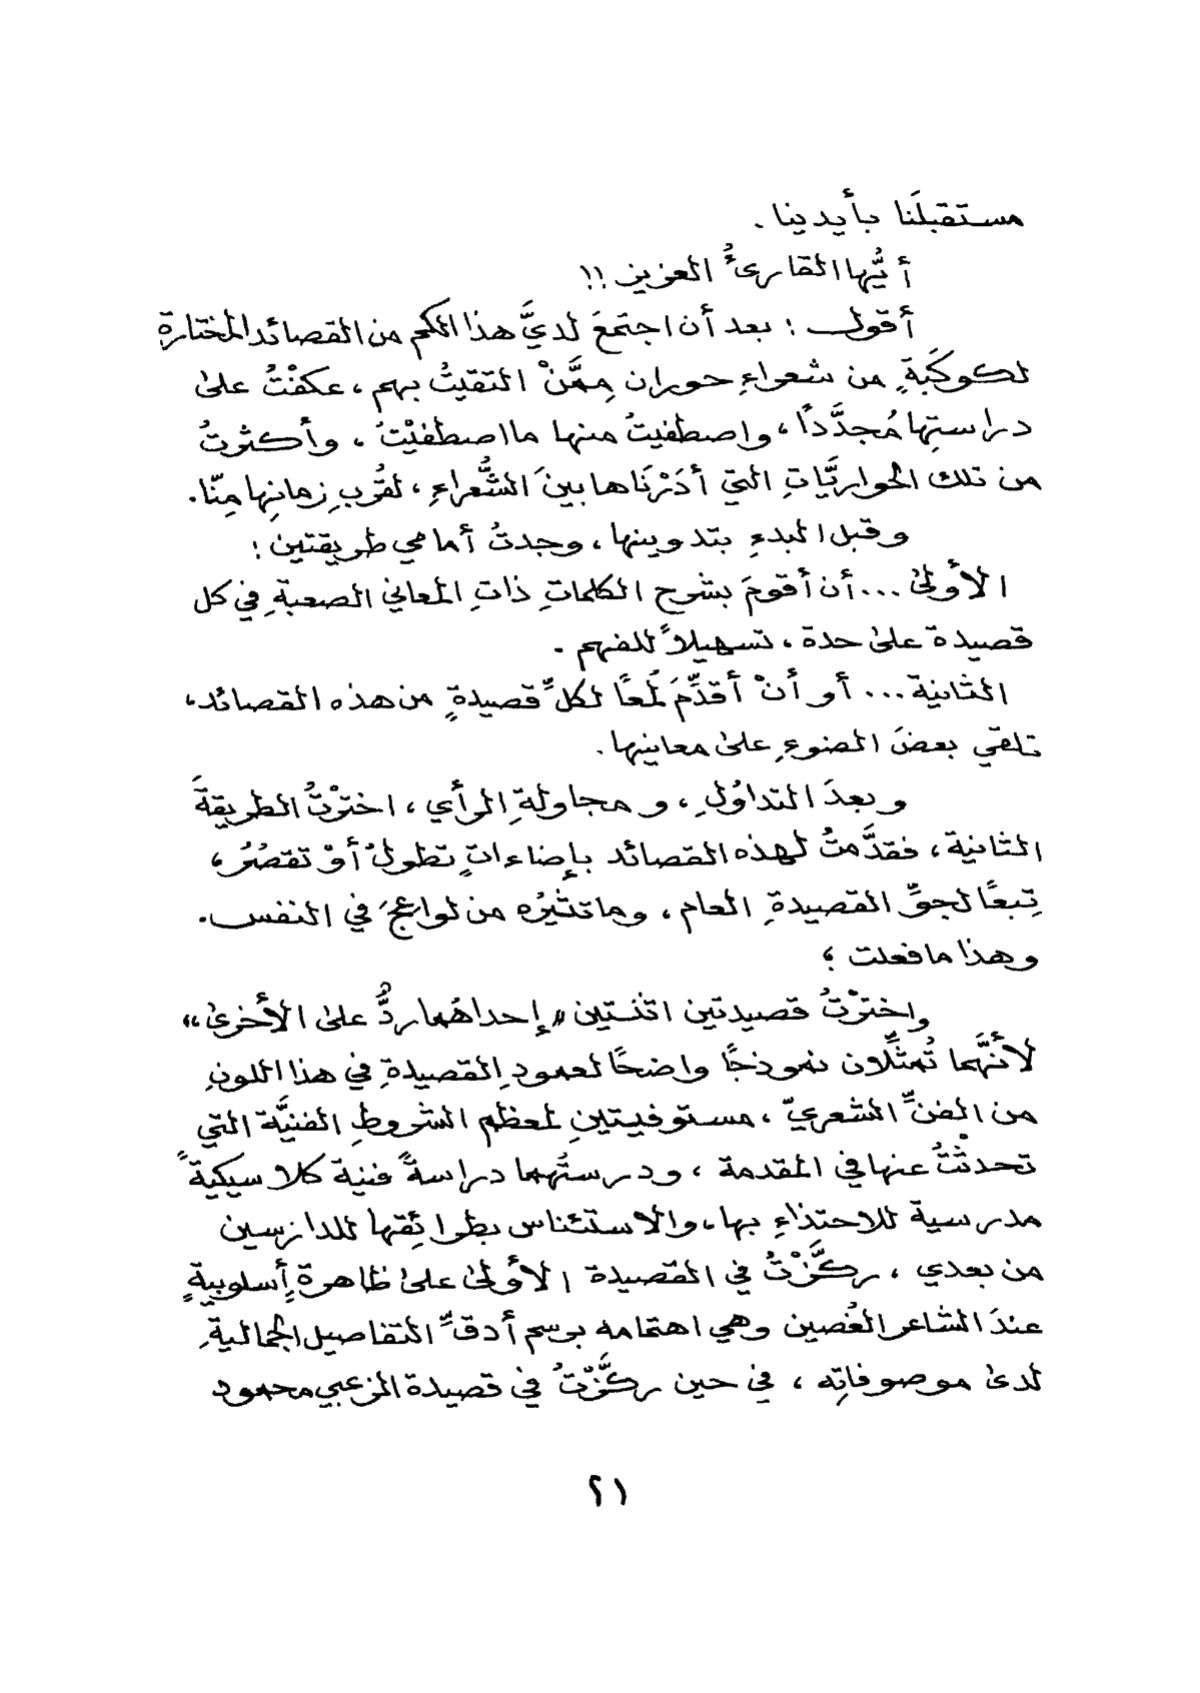 مستقبلَنا بأيدينا .
أيُّها القارئُ العزيز !!
أقول : بعد أن اجتمعَ لديَّ هذا الكم من القصائد المختارةِ
لكوكَبَةٍ من شعراءِ حوران مِمَّنْ التقيتُ بهم ، عكفْتُ على
دراستِها مُجدَّداً ، واصطفيتُ منها ما اصطفيْتُ ، وأكثرتُ
من تلك الحواريَّاتِ التي أدَرْنَاها بينَ الشُّعراءِ ، لقُربِ زمانِها مِنّا .
وقبل البدءِ بتدوينها ، وجدتُ أمامي طريقتين :
الأولى ... أن أقومَ بشرح الكلماتِ ذاتِ المعاني الصعبةِ في كل
قصيدة على حدة ، تسهيلاً للفهم .
الثانية ... أو أنْ أقدِّمَ لُمعًا لكلِّ قصيدةٍ من هذه القصائد ،
تلقي بعضَ الضوءِ على معانيها .
وبعدَ التداوُلِ ، و مجاولةِ الرأي ، اخترْتُ الطريقةَ
الثانية ، فقدَّمتُ لهذه القصائد بإضاءاتٍ تطولُ أوْ تقصُرُ ،
تِبعًا لجوِّ القصيدةِ العام ، وما تثيرُه من لواعجَ في النفس .
وهذا ما فعلت ؛
واخترْتُ قصيدتين اثنتين « إحداهُما ردُّ على الأخرى »
لأنَّهما تُمثِّلان نموذجًا واضحًا لعمودِ القصيدةِ في هذا اللونِ
من الفنِّ الشعريّ ، مستوفيتينِ لمعظم الشروطِ الفنيَّة التي
تحدثْتُ عنها في المقدمة ، ودرستُهما دراسةً فنية كلاسيكيةً
مدرسية للاحتذاءِ بها ، والاستئناس بطرائِقها للدارسين
من بعدي ، ركَّزْتُ في القصيدة الأولى على ظاهرةٍ أسلوبيةٍ
عندَ الشاعر الغُصين وهي اهتمامه برسم أدقِّ التفاصيل الجماليةِ
لدى موصوفاتِه ، في حين ركَّزْتُ في قصيدة الزعبي محمود
٢١